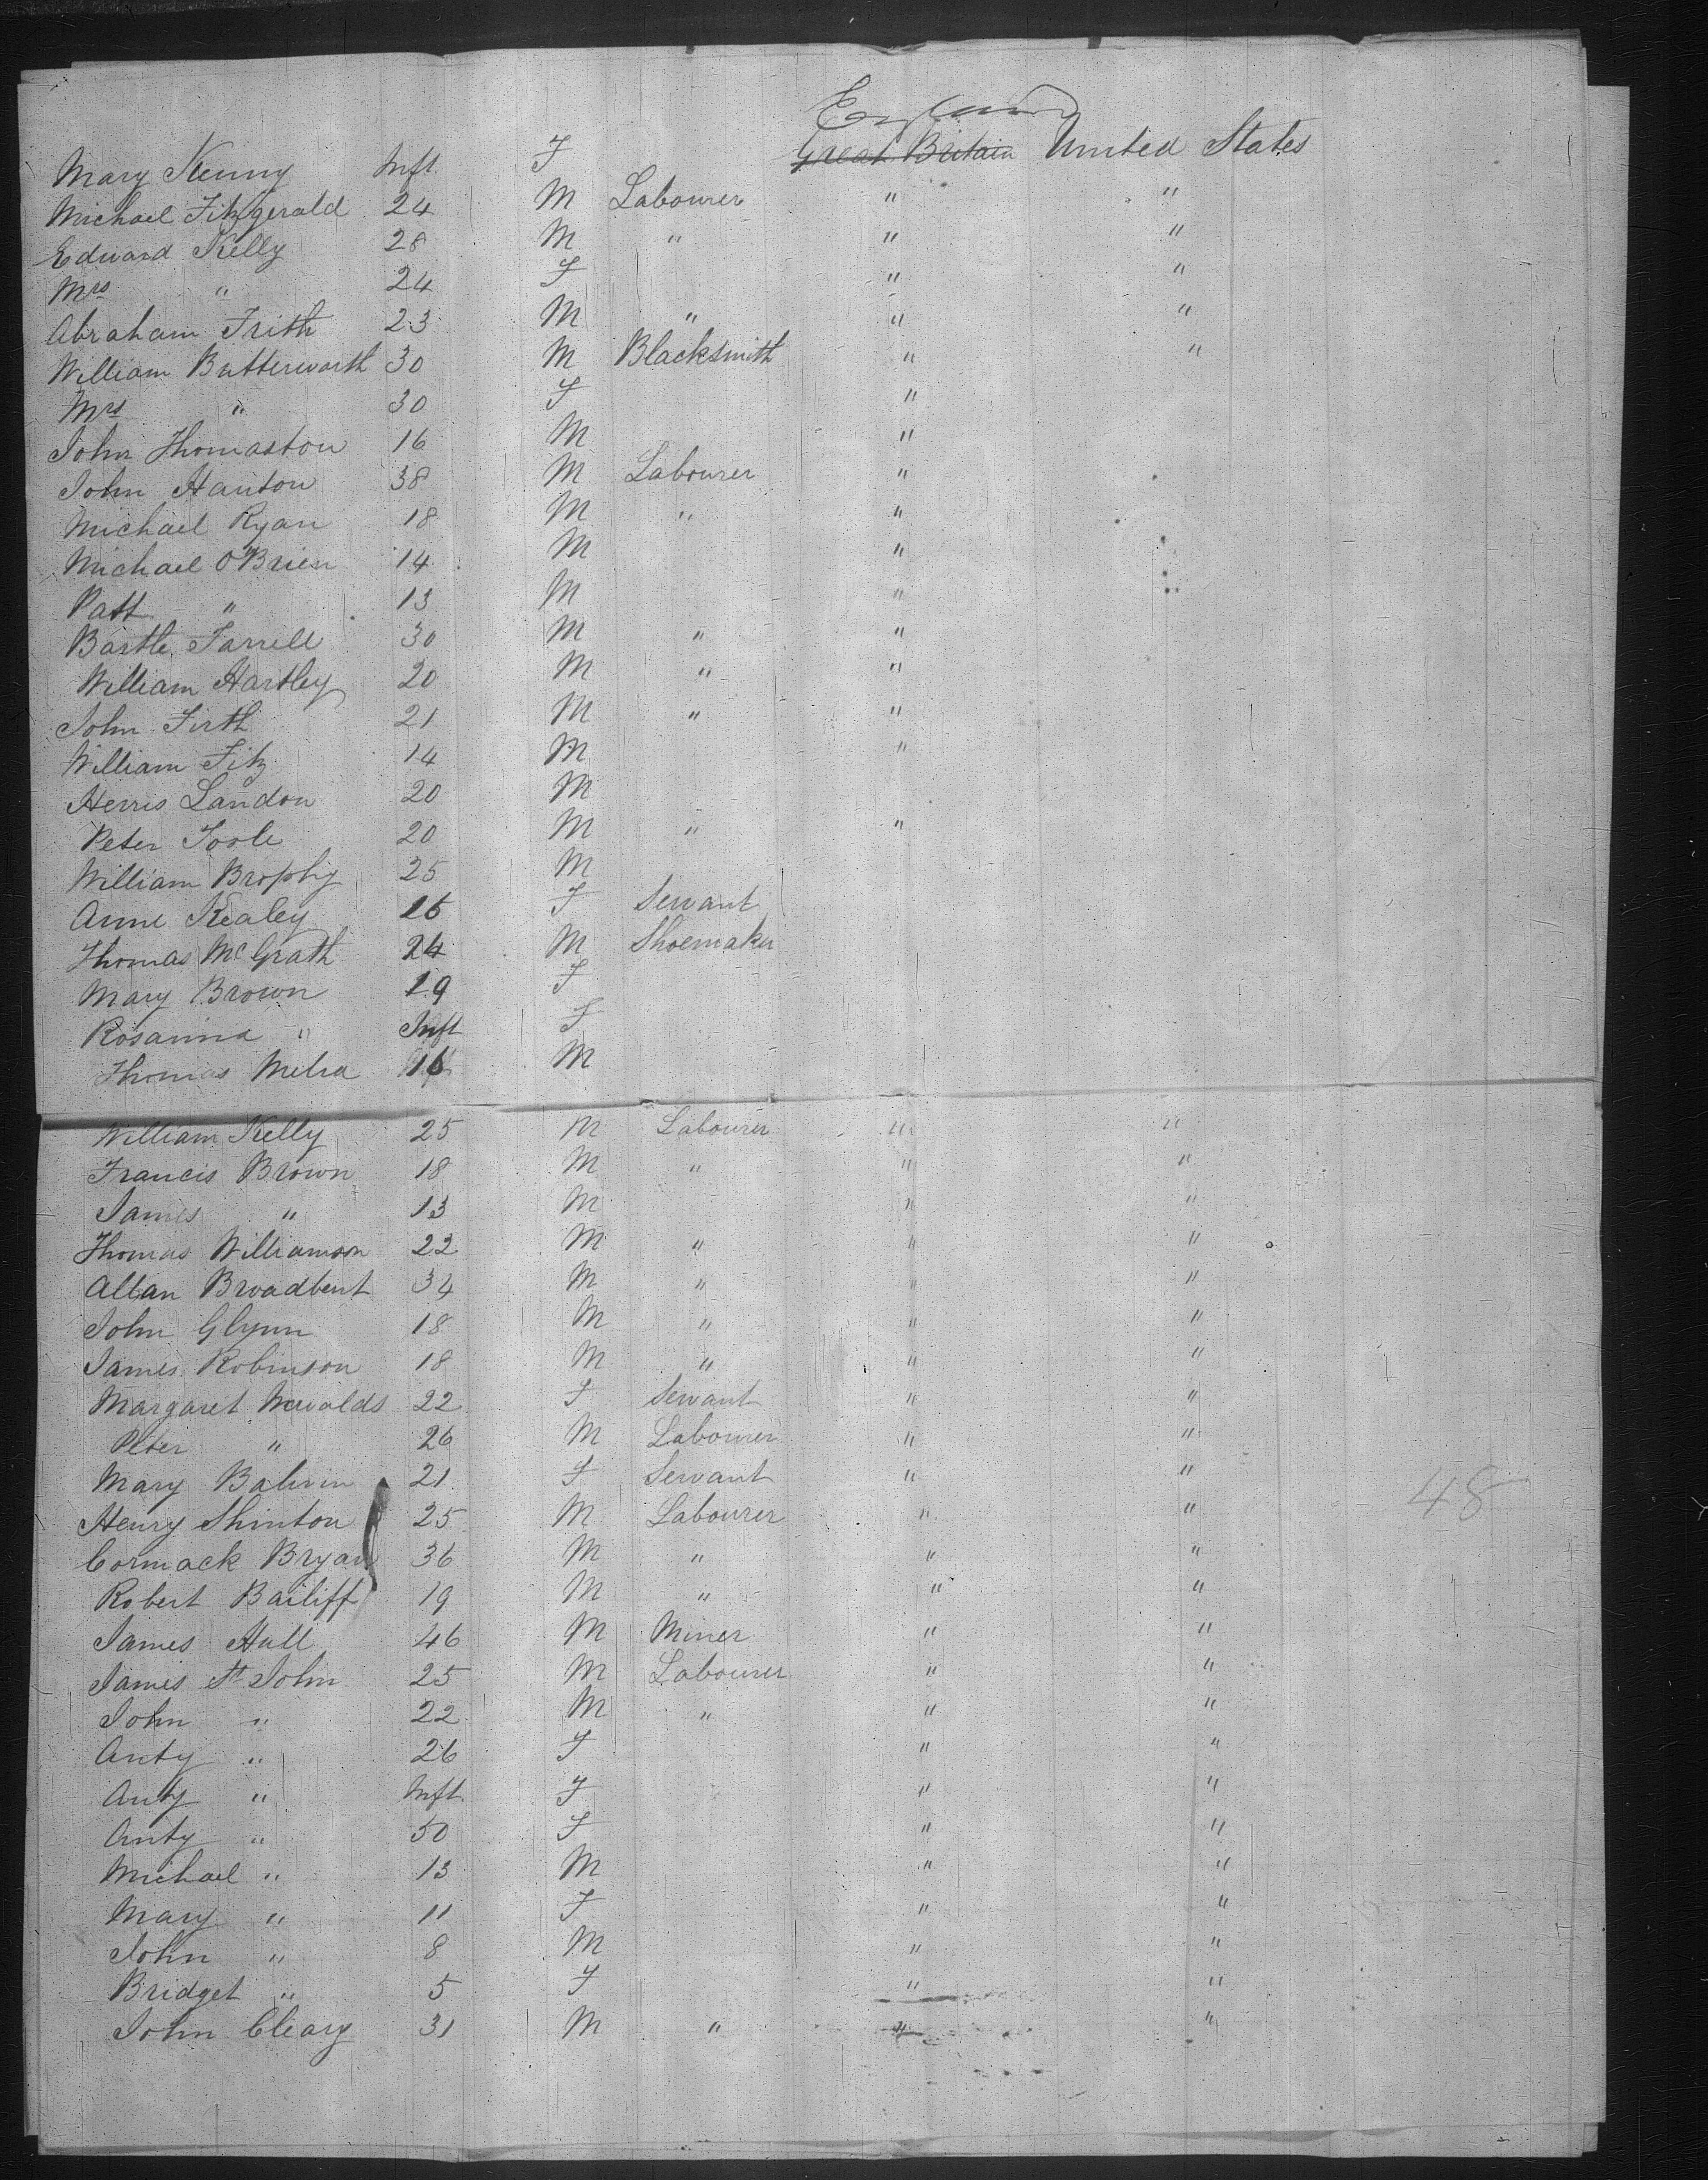 England
Mary Kenny Inft. F Great Britain United States
Michael Fitzgerald 24 M Labourer " "
Edward Kelly 28 M " " "
Mrs " 24 F " "
Abraham Frith 23 M " " "
William Butterworth 30 M Blacksmith " "
Mrs " 30 F "
John Thomaston 16 M "
John Hanton 38 M Labourer "
Michael Ryan 18 M " "
Michael O'Brien 14 M "
Patt " 13 M "
Bartle Farrell 30 M " "
William Hartley 20 M " "
John Firth 21 M " "
William Fitz 14 M "
Herris Landon 20 M
Peter Toole 20 M " "
William Brophy 25 M
Anne Kealey 16 F Servant
Thomas McGrath 24 M Shoemaker
Mary Brown 19 F
Rosanna " Inft F
Thomas 16 M
William Kelly 25 M Labourer " "
Francis Brown 18 M " " "
James " 13 M " "
Thomas Williamson 22 M " " "
Allan Broadbent 34 M " " "
John Glynn 18 M " " "
James Robinson 18 M " " "
Margaret 22 F Servant " "
Peter " 26 M Labourer " "
Mary 21 F Servant " "
Henry Shinton 25 M Labourer " "
Cormack Bryan 36 M " " "
Robert Bailiff 19 M " " "
James Hull 46 M Miner " "
James St John 25 M Labourer " "
John " 22 M " " "
Anty " 26 F " "
Anty " Inft F " "
Anty " 50 F " "
Michael " 13 M " "
Mary " 11 F " "
John " 8 M " "
Bridget " 5 F " "
John Cleary 31 M " " "
48